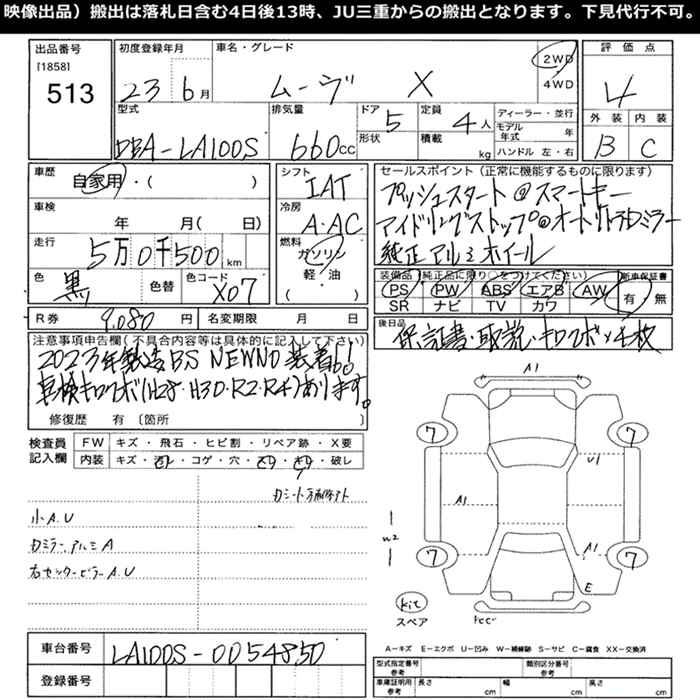 映像出品）搬出は落札日含む4日後13時、JU三重からの搬出となります。下見代行不可。
出品番号
[1858]
513
初度登録年月
23 6月
車名・グレード
ムーヴ X
2WD
4WD
評価点
4
外装 内装
B C
型式
DBA-LA100S
排気量
660cc
ドア 5
形状
定員 4人
積載 kg
ディーラー・並行
モデル年式 年
ハンドル 左・右
車歴
自家用・( )
車検
年 月( 日)
走行
5万0千500km
色 黒
色替
色コード X07
シフト
IAT
冷房
A・AC
燃料
ガソリン
軽・油
( )
セールスポイント（正常に機能するものに限ります）
プッシュスタート@スマートキー
アイドリングストップ@オートリトラミラー
純正アルミホイール
装備品（純正品に限り○をつけてください）
PS PW ABS エアB AW
SR ナビ TV カワ
新車保証書
有 無
R券 9,080円
名変期限 月 日
後日品
保証書・取説・キロクボ4枚
注意事項申告欄(不具合内容等は具体的に記入して下さい)
2023年製造BS NEWNO装着b!!
車検キロクボ(H28・H30・R2・R4)あります。
修復歴 有〔箇所 〕
検査員記入欄
FW キズ・飛石・ヒビ割・リペア跡・X要
内装 キズ・汚れ・コゲ・穴・スリ・キリ・破レ
小A.U
カミラー、アルミA
右センターピラーA.U
A1
7
7
U1
A1
W2
A1
7
7
E
kit
スペア
Fcc
車台番号
LA100S-0054850
登録番号
A−キズ E−エクボ U−凹み W−補修跡 S−サビ C−腐食 XX−交換済
型式指定番号
参考
類別区分番号
参考
車庫証明用
参考
長さ cm
幅 cm
高さ cm